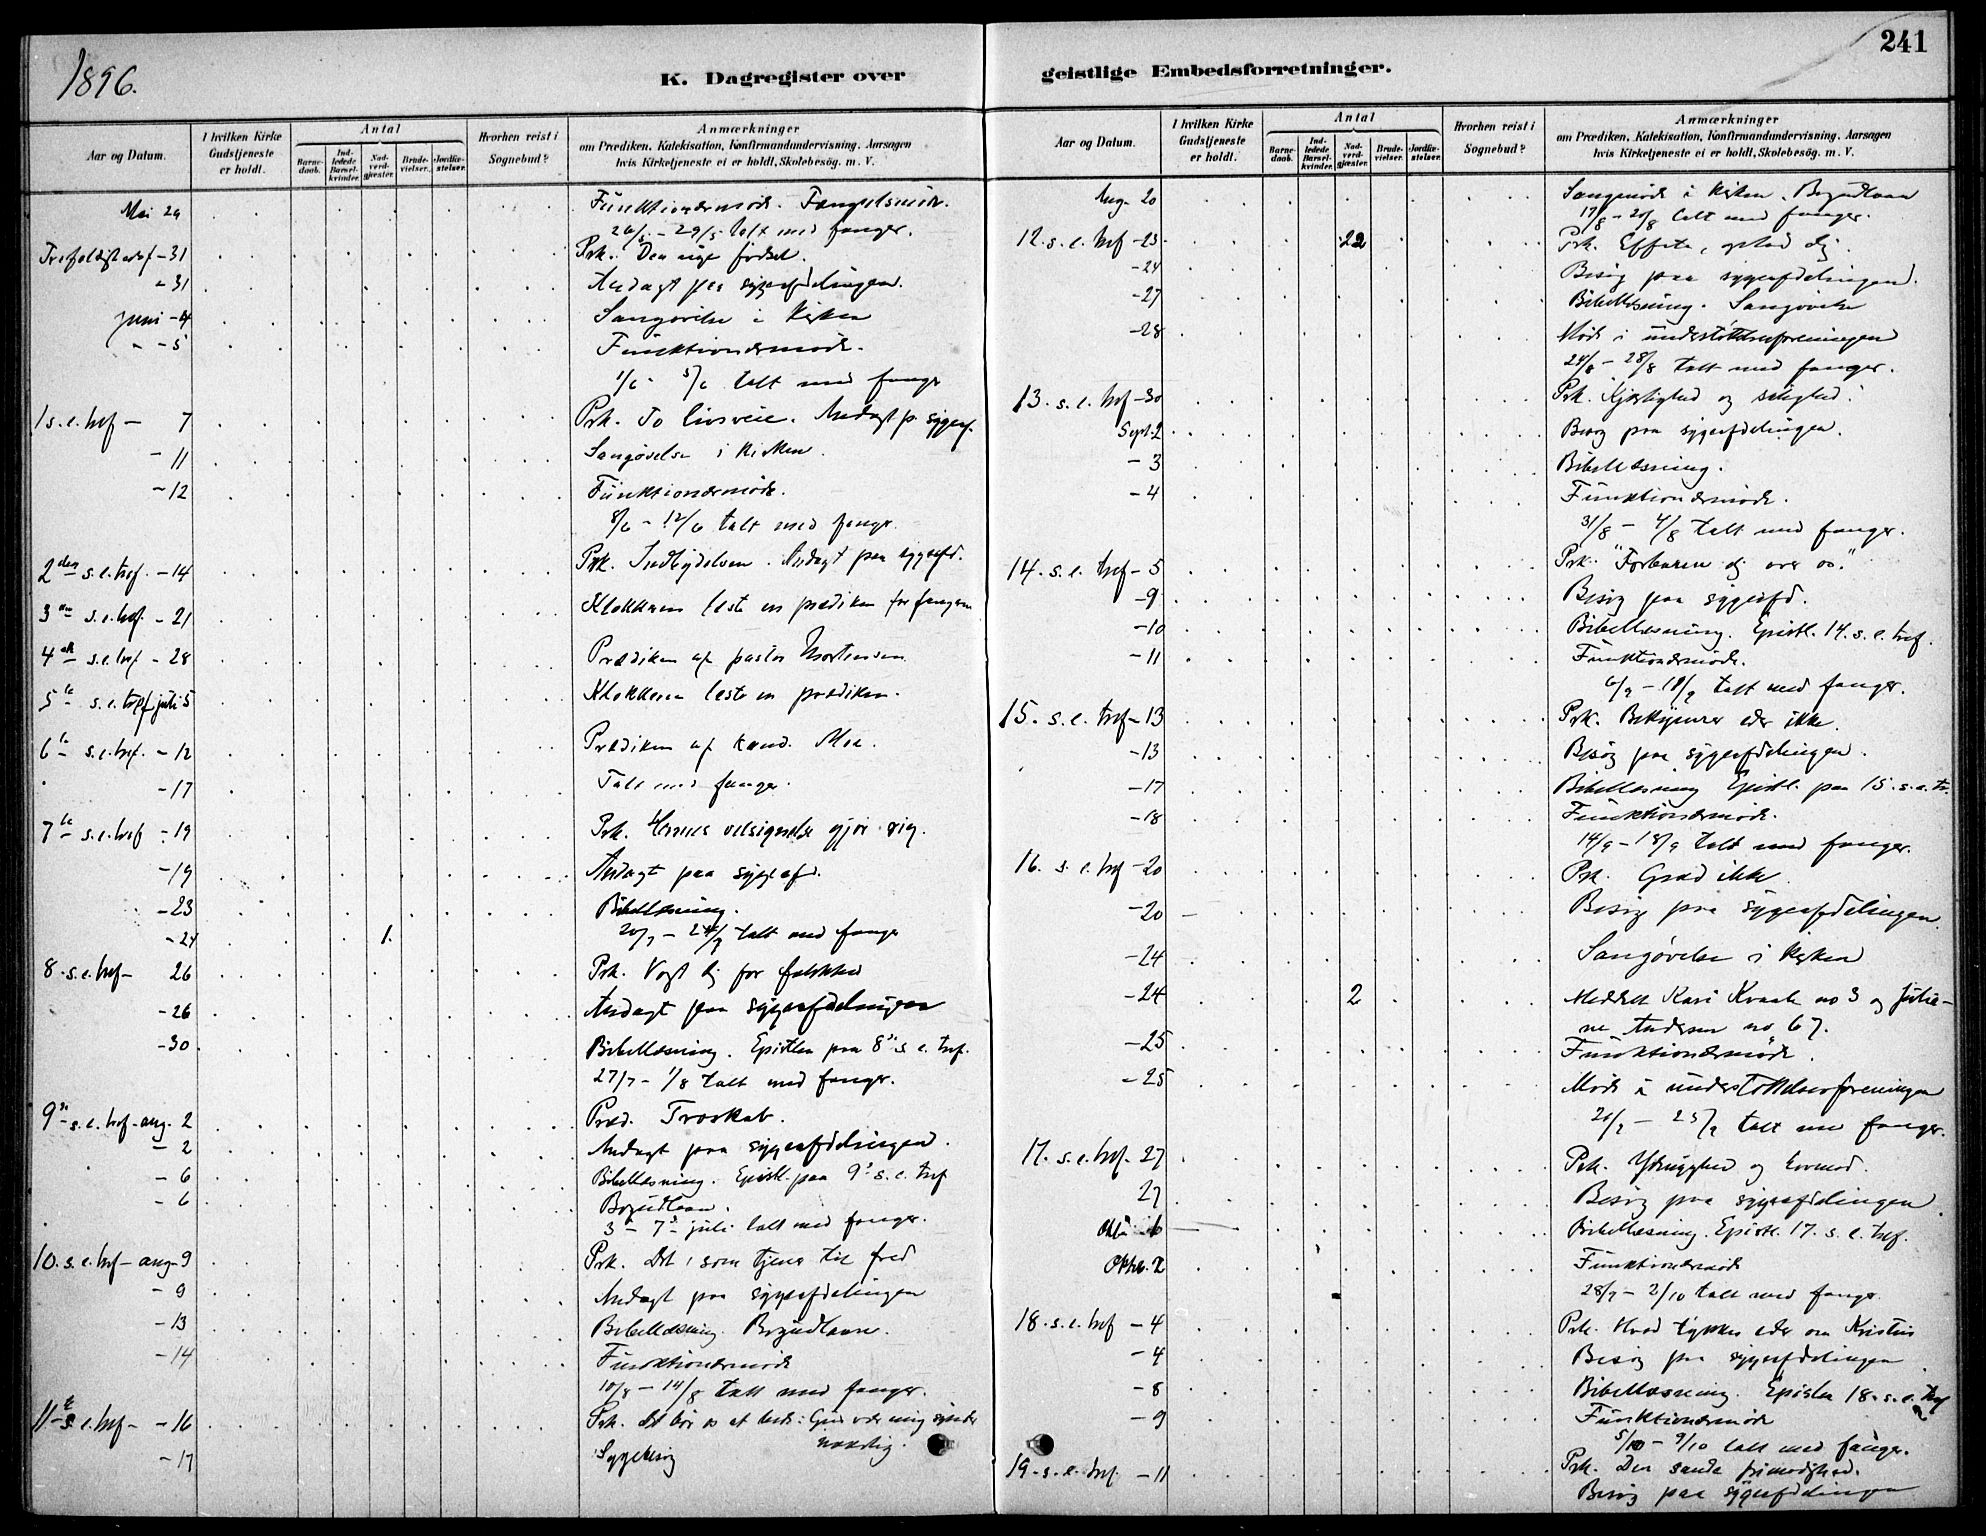 1896.
K. Dagregister over
Aar og Datum.
I hvilken Kirke Gudstjeneste er holdt.
Antal
Barne-daab.
Ind-ledede Barsel-kvinder.
Nad-verd-gjæster.
Brude-vielser.
Jordfæ-stelser.
Hvorhen reist i Sognebud?
Anmærkninger
om Prædiken, Katekisation, Konfirmandundervisning, Aarsagen
hvis Kirketjeneste ei er holdt, Skolebesøg, m. V.
Mai 29 Funktionærmøde.
26/5 - 29/5 talt med fanger.
-31 Prk. Den nye fødsel.
-31 Andagt paa sygeafdelingen.
Juni -4 Sangøvelse i Kirken
-5 Funktionærmøde.
1/6 - 5/6 talt med fanger
1 s.e. tref - 7 Prk. To livsveie. Andagt p. sygeaf.
-11 Sangøvelse i Kirken.
-12 Funktionærmøde.
8/6 - 12/6 talt med fanger.
2den s.e. tref. -14 Prk. Indbydelsen. Andagt paa sygeafd.
3die s.e. tref. -21 Klokkeren læste en prædiken for fangerne
4de s.e. tref -28 Prædiken af pastor Mortensen
5te s.e. tref juli 5 Klokkeren læste en prædiken.
6te s.e. tref. -12 Prædiken af kand. Moe.
-17 Talt med fanger.
7te s.e. tref -19 Prk. Herrens velsignelse gjør rig.
-19 Andagt paa sygeafd.
-23 Bibellæsning.
-24 1. 20/7 - 24/7 talt med fanger
8. s.e. tref - 26 Prk. Vogt dig for falskhed
-26 Andagt paa sygeafdelingen
-30 Bibellæsning. Epistlen paa 8de s.e. tref.
27/7 - 1/8 talt med fanger.
9de s.e. tref. aug. 2 Præd. Troskab.
- 2 Andagt paa sygeafdelingen.
- 6 Bibellæsning. Epistl. paa 9de s.e. tref
- 6 Bogudlaan.
3 - 7 juli talt med fanger.
10. s.e. tref - aug-9 Prk. Det, som tjener til fred
- 9 Andagt paa sygeafdelingen
-13 Bibellæsning. Bogudlaan.
-14 Funktionærmøde
10/8 - 14/8 talt med fanger.
11te s.e. tref - -16 Prk. Det bør os at bede: Gud vær mig synder naadig.
-17 Sygebesøg
241
geistlige Embedsforretninger.
Aar og Datum.
I hvilken Kirke Gudstjeneste er holdt.
Antal
Barne-daab.
Ind-ledede Barsel-kvinder.
Nad-verd-gjæster.
Brude-vielser.
Jordfæ-stelser.
Hvorhen reist i Sognebud?
Anmærkninger
om Prædiken, Katekisation, Konfirmandundervisning, Aarsagen
hvis Kirketjeneste ei er holdt, Skolebesøg, m. V.
Aug- 20 Sangmøde i Kirken. Bogudlaan
17/8 - 20/8 talt med fanger.
12. s.e. tref -23 22 Prk. Effata, oplad dig.
-24 Besøg paa sygeafdelingen.
-27 Bibellæsning. Sangøvelse
-28 Møde i understøttelsesforeningen
24/8 - 28/8 talt med fanger.
13. s.e. tref -30 Prk. Kjærlighed og salighed.
Sept. 2 Besøg paa sygeafdelingen.
- 3 Bibellæsning.
- 4 Funktionærmøde.
31/8 - 4/8 talt med fanger.
14. s.e. tref -5 Prk. "Forbarm dig over os."
-9 Besøg paa sygeafd.
-10 Bibellæsning. Epistl. 14. s.e. tref.
-11 Funktionærmøde.
talt med fanger.
15. s.e. tref -13 Prk. Bekymrer eder ikke.
-13 Besøg paa sygeafdelingen.
-17 Bibellæsning Epistl. paa 15. s.e. tr.
-18 Funktionærmøde.
14/9 - 18/9 talt med fanger.
16. s.e. tref -20 Prk. Græd ikke.
-20 Besøg paa sygeafdelingen
-24 Sangøvelse i Kirken
-24 2 Meddelt Kari no 3 og Julia-
ne Andersen no 67.
-25 Funktionærmøde.
-25 Møde i understøttelsesforeningen
- 25/9 talt med fanger.
17. s.e. tref. 27 Prk. Ydmyghed og hovmod.
27 Besøg paa sygeafdelingen
Bibellæsning. Epistl. 17. s.e. tref.
Oktbr. 2 Funktionærmøde
28/9 - 2/10 talt med fanger.
18. s.e. tref -4 Prk. Hvad tykkes eder om Kristus
-4 Besøg paa sygeafdelingen
-8 Bibellæsning. Epistlen 18. s.e. tref
-9 Funktionærmøde
5/10 - 9/10 talt med fanger.
19. s.e. tref. -11 Prk. Den sande frimodighed.
Besøg paa sygeafdelingen